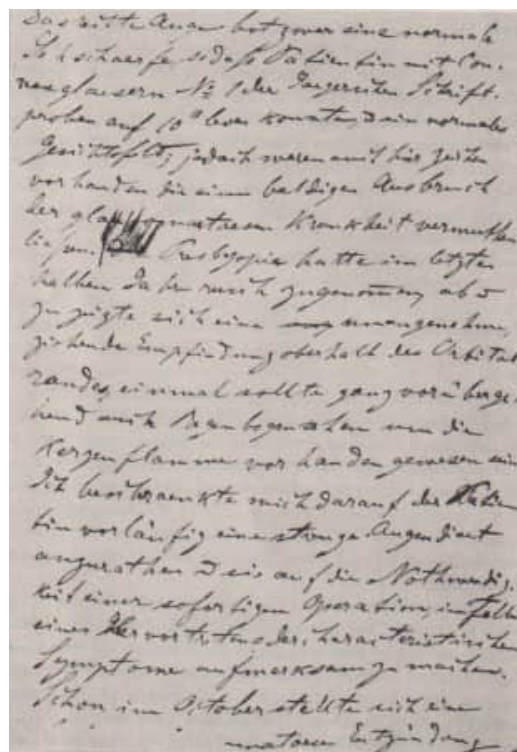 Das erste Auge bot zwar eine normale
Sehschaerfe sodaſs Patientin mit Con-
vexglaesern № 1 der Jaegerschen Schrift-
proben auf 10" lesen konnte, & ein normales
Gesichtsfeld; jedoch waren auch hier Zeichen
vorhanden die einen baldigen Ausbruch
der glaucomatoesen Krankheit vermuthen
lieſsen. Presbyopie hatte im letzten
halben Jahr rasch zugenom̅en, ab &
zu zeigte sich eine unangenehme,
ziehende Empfindung oberhalb des Orbital
randes, einmal sollte ganz vorüberge-
hend auch Regenbogensehen um die
Kerzenflamme vorhanden gewesen sein
Ich beschraenkte mich darauf der Patien
tin vorläufig eine strenge Augendiaet
anzurathen & sie auf die Nothwendig-
keit einer sofortigen Operation, im Falle
eines Hervortretens der characteristischen
Symptome aufmerksam zu machen.
Schon im October stellte sich eine
matoese Entzündung